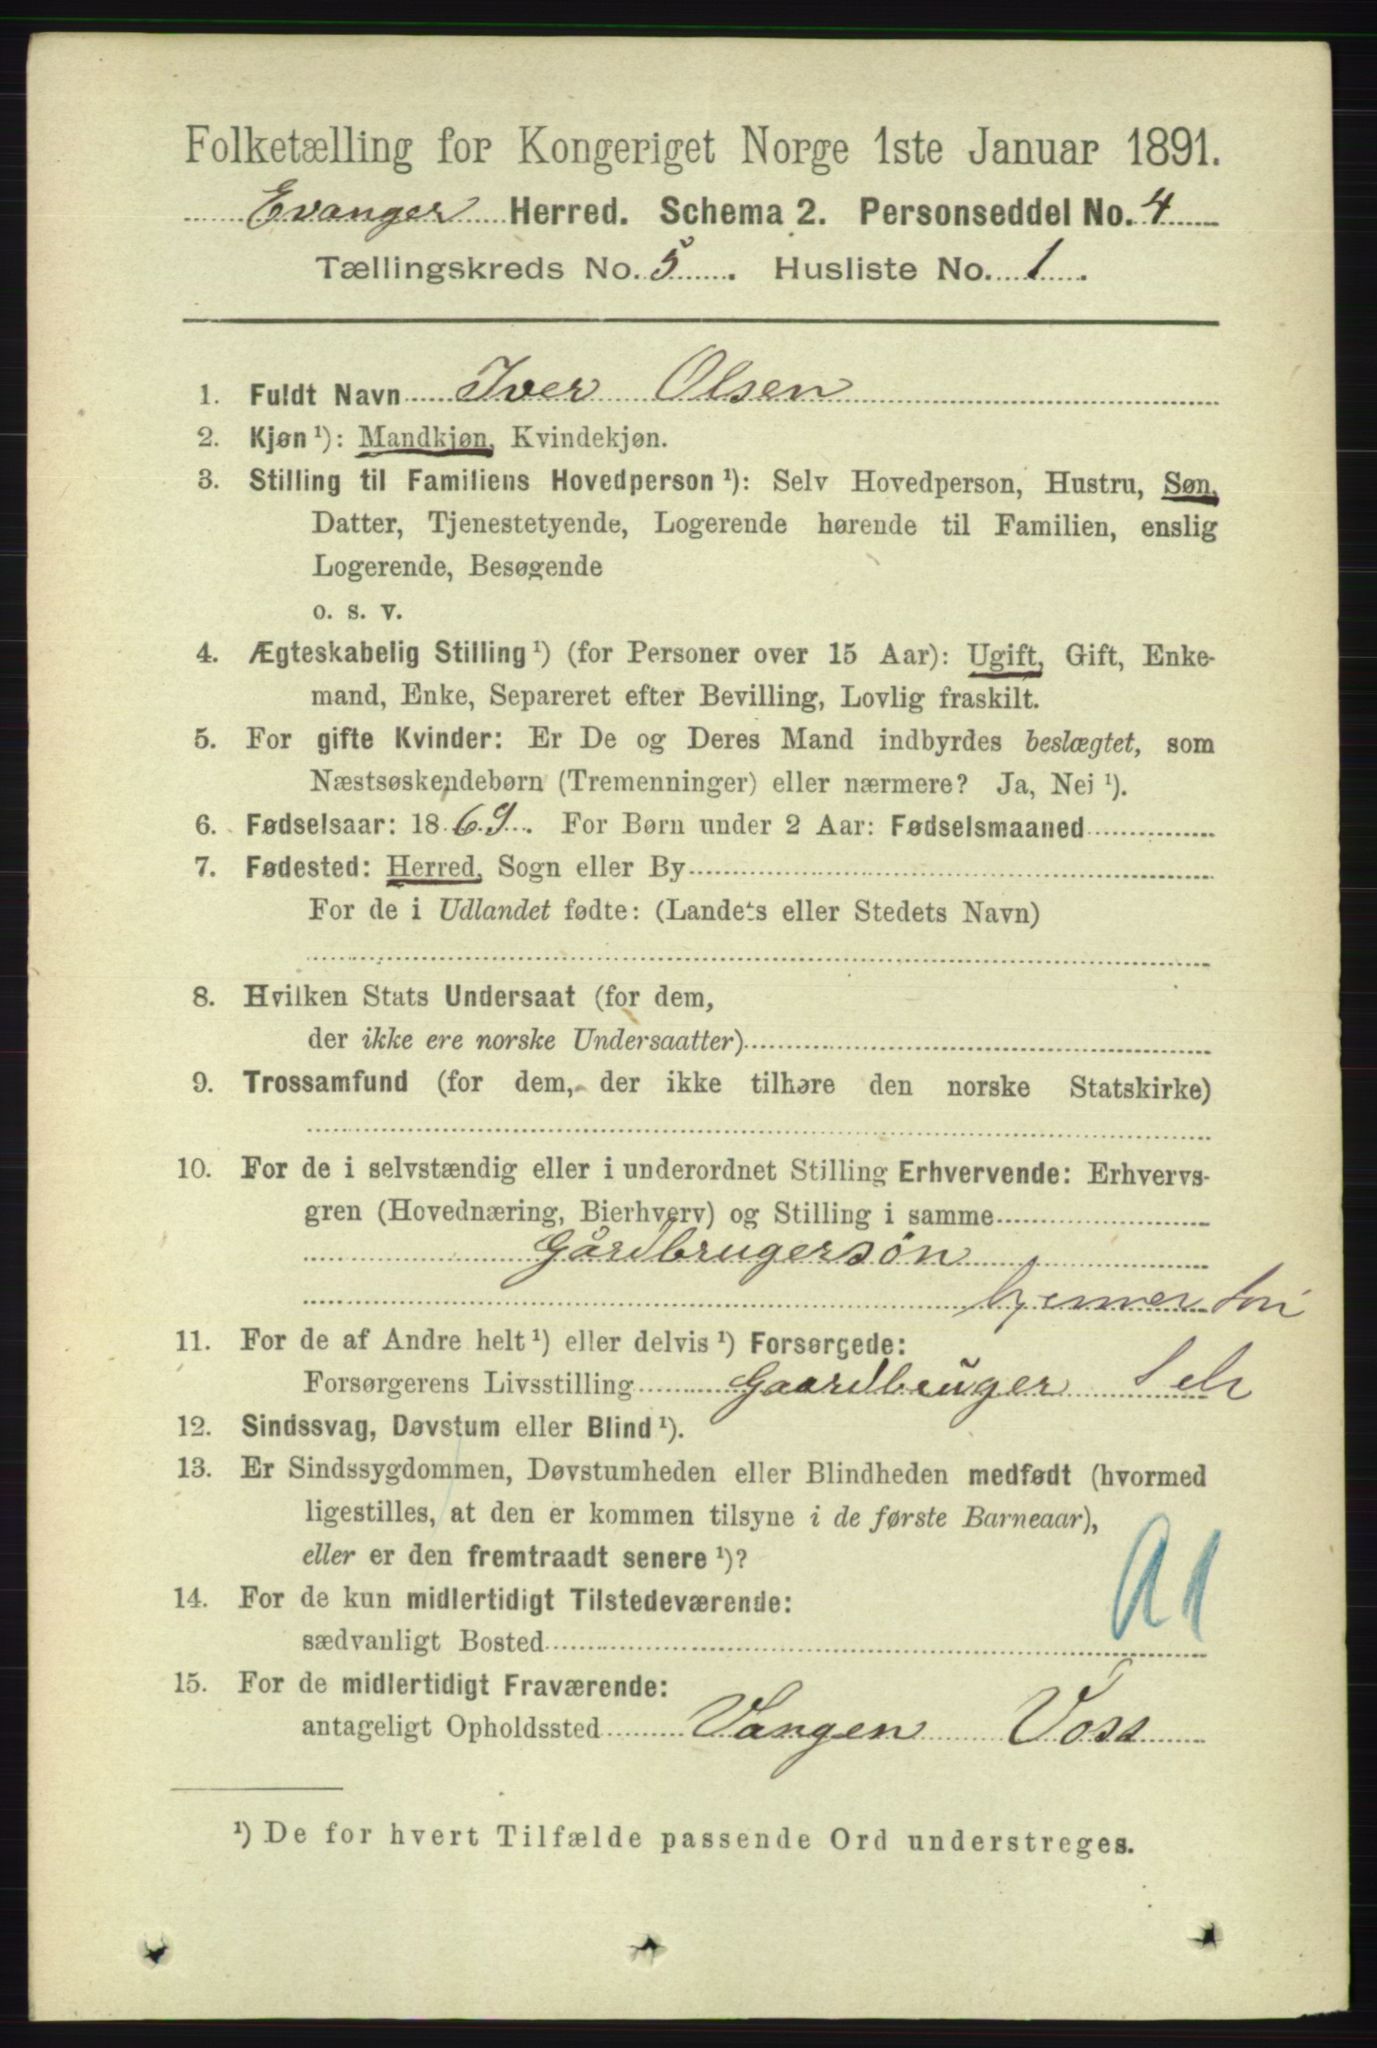 Folketælling for Kongeriget Norge 1ste Januar 1891.
Evanger Herred. Schema 2. Personseddel No. 4
Tællingskreds No. 5. Husliste No. 1.
1. Fuldt Navn Iver Olsen
2. Kjøn ¹): Mandkjøn, Kvindekjøn.
3. Stilling til Familiens Hovedperson ¹): Selv Hovedperson, Hustru, Søn,
Datter, Tjenestetyende, Logerende hørende til Familien, enslig
Logerende, Besøgende
o. s. v.
4. Ægteskabelig Stilling ¹) (for Personer over 15 Aar): Ugift, Gift, Enke-
mand, Enke, Separeret efter Bevilling, Lovlig fraskilt.
5. For gifte Kvinder: Er De og Deres Mand indbyrdes beslægtet, som
Næstsøskendebørn (Tremenninger) eller nærmere? Ja, Nei ¹).
6. Fødselsaar: 1869. For Børn under 2 Aar: Fødselsmaaned
7. Fødested: Herred, Sogn eller By
For de i Udlandet fødte: (Landets eller Stedets Navn)
8. Hvilken Stats Undersaat (for dem,
der ikke ere norske Undersaatter)
9. Trossamfund (for dem, der ikke tilhøre den norske Statskirke)
10. For de i selvstændig eller i underordnet Stilling Erhvervende: Erhvervs-
gren (Hovednæring, Bierhverv) og Stilling i samme
Gårdbrugersøn
hjemme
11. For de af Andre helt ¹) eller delvis ¹) Forsørgede:
Forsørgerens Livsstilling Gaardbruger
12. Sindssvag, Døvstum eller Blind ¹).
13. Er Sindssygdommen, Døvstumheden eller Blindheden medfødt (hvormed
ligestilles, at den er kommen tilsyne i de første Barneaar),
eller er den fremtraadt senere ¹)?
14. For de kun midlertidigt Tilstedeværende:
sædvanligt Bosted
15. For de midlertidigt Fraværende:
antageligt Opholdssted Vangen Voss
¹) De for hvert Tilfælde passende Ord understreges.